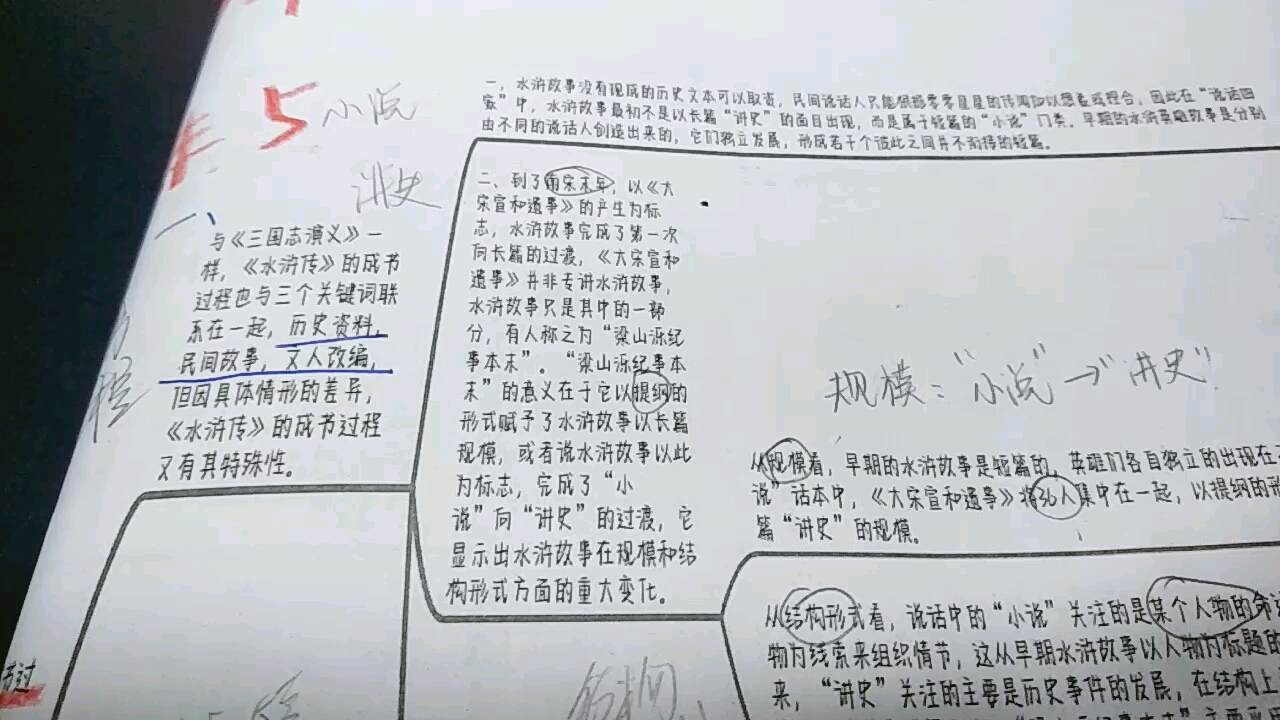 5 小说
讲史
一、水浒故事没有现成的历史文本可以取资，民间说话人只能根据零零星星的传闻加以想象或捏合，因此在“说话四
家”中，水浒故事最初不是以长篇“讲史”的面目出现，而是属于短篇的“小说”门类。早期的水浒英雄故事是分别
由不同的说话人创造出来的，它们独立发展，形成若干个彼此之间并不衔接的短篇。
一、
与《三国志演义》一
样，《水浒传》的成书
过程也与三个关键词联
系在一起，历史资料，
民间故事，文人改编，
但因具体情形的差异，
《水浒传》的成书过程
又有其特殊性。
二、到了南宋末年，以《大
宋宣和遗事》的产生为标
志，水浒故事完成了第一次
向长篇的过渡，《大宋宣和
遗事》并非专讲水浒故事，
水浒故事只是其中的一部
分，有人称之为“梁山泺纪
事本末”。“梁山泺纪事本
末”的意义在于它以提纲的
形式赋予了水浒故事以长篇
规模，或者说水浒故事以此
为标志，完成了“小
说”向“讲史”的过渡，它
显示出水浒故事在规模和结
构形式方面的重大变化。
规模：“小说”→“讲史”
从规模看，早期的水浒故事是短篇的，英雄们各自独立的出现在
说”话本中，《大宋宣和遗事》将36人集中在一起，以提纲的形
篇“讲史”的规模。
从结构形式看，说话中的“小说”关注的是某个人物的命
物为线索来组织情节，这从早期水浒故事以人物为标题的
来，“讲史”关注的主要是历史事件的发展，在结构上
书过
结构